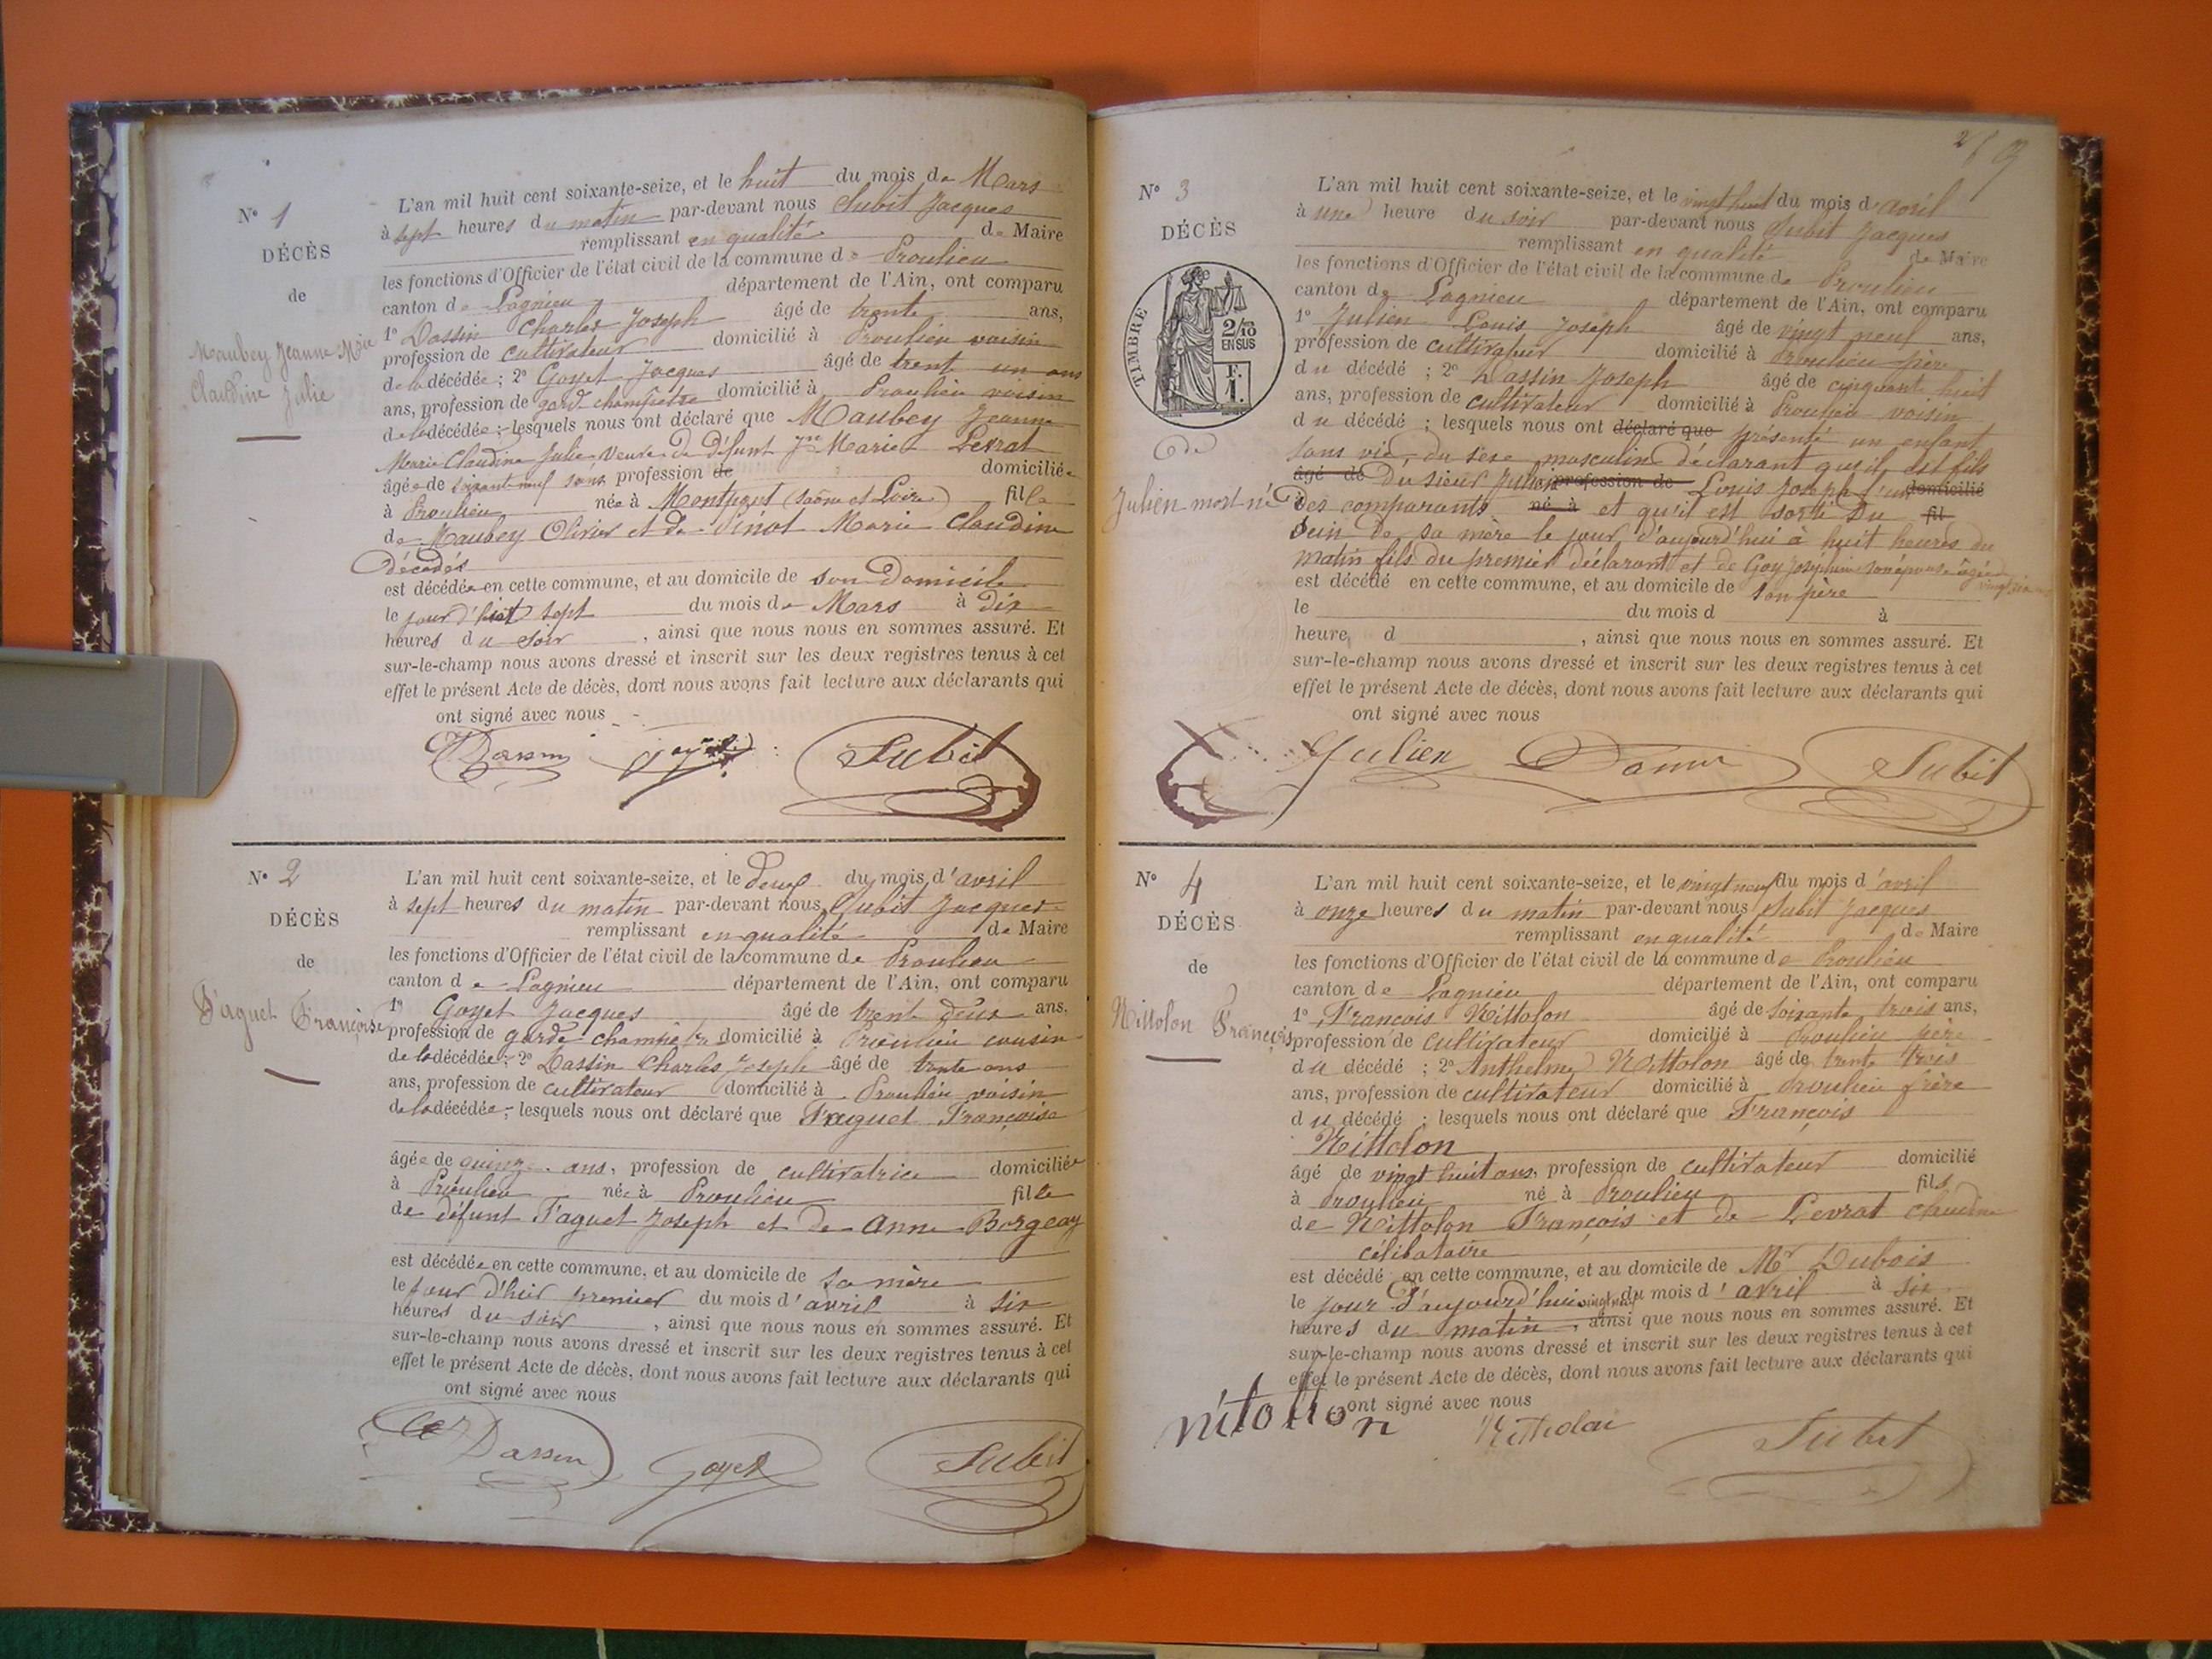 N° 1
DÉCÈS
de
Maubey Jeanne Marie
Claudine Julie
L'an mil huit cent soixante-seize, et le huit du mois de Mars
à sept heures du matin par-devant nous Subit Jacques
remplissant en qualité de Maire
les fonctions d'Officier de l'état civil de la commune de Proulieu
canton de Lagnieu département de l'Ain, ont comparu
1° Dassin Charles Joseph âgé de trente ans,
profession de cultivateur domicilié à Proulieu voisin
de la décédée ; 2° Goyet Jacques âgé de trent un ans
ans, profession de gard champêtre domicilié à Proulieu voisin
de la décédée ; lesquels nous ont déclaré que Maubey Jeanne
Marie Claudine Julie veuve de défunt Jn Marie Levrat
âgée de soixant neuf sans profession de domiciliée
à Proulieu née à Montpont (Saône et Loire) fille
de Maubey Olivier et de Pinot Marie Claudine
décédés
est décédée en cette commune, et au domicile de son Domicile
le jour d'hier sept du mois de Mars à dix
heures du soir , ainsi que nous nous en sommes assuré. Et
sur-le-champ nous avons dressé et inscrit sur les deux registres tenus à cet
effet le présent Acte de décès, dont nous avons fait lecture aux déclarants qui
ont signé avec nous
Dassin Goyet Subit
N° 2
DÉCÈS
de
Faguet Françoise
L'an mil huit cent soixante-seize, et le deux du mois d'avril
à sept heures du matin par-devant nous Subit Jacques
remplissant en qualité de Maire
les fonctions d'Officier de l'état civil de la commune de Proulieu
canton de Lagnieu département de l'Ain, ont comparu
1° Goyet Jacques âgé de trent deux ans,
profession de garde champêtre domicilié à Proulieu cousin
de la décédée ; 2° Dassin Charles Joseph âgé de trente ans
ans, profession de cultivateur domicilié à Proulieu voisin
de la décédée ; lesquels nous ont déclaré que Faguet Françoise
âgée de quinze ans, profession de cultivatrice domiciliée
à Proulieu née à Proulieu fille
de défunt Faguet Joseph et de Anne Borgeay
est décédée en cette commune, et au domicile de sa mère
le jour d'hier premier du mois d'avril à six
heures du soir , ainsi que nous nous en sommes assuré. Et
sur-le-champ nous avons dressé et inscrit sur les deux registres tenus à cet
effet le présent Acte de décès, dont nous avons fait lecture aux déclarants qui
ont signé avec nous
Dassin Goyet Subit
N° 3
DÉCÈS
TIMBRE
2/10
EN SUS
F.
1.
de
Julien mort né
L'an mil huit cent soixante-seize, et le vingt huit du mois d'avril
à une heure du soir par-devant nous Subit Jacques
remplissant en qualité de Maire
les fonctions d'Officier de l'état civil de la commune de Proulieu
canton de Lagnieu département de l'Ain, ont comparu
1° Julien Louis Joseph âgé de vingt neuf ans,
profession de cultivateur domicilié à Proulieu père
du décédé ; 2° Dassin Joseph âgé de cinquant huit
ans, profession de cultivateur domicilié à Proulieu voisin
du décédé ; lesquels nous ont déclaré que présenté un enfant
sans vie, du sexe masculin déclarant qu'il est fils
âgé de Du sieur Julien profession de Louis Joseph l'un domicilié
à des comparants né à et qu'il est sorti du fil
sein de sa mère le jour d'aujourd'hui à huit heures du
matin fils du premier déclarant et de Goy Joséphine son épouse âgée
est décédé en cette commune, et au domicile de son père
le du mois d à
heure d , ainsi que nous nous en sommes assuré. Et
sur-le-champ nous avons dressé et inscrit sur les deux registres tenus à cet
effet le présent Acte de décès, dont nous avons fait lecture aux déclarants qui
ont signé avec nous
Julien Dassin Subit
N° 4
DÉCÈS
de
Nittolon François
L'an mil huit cent soixante-seize, et le vingt neuf du mois d'avril
à onze heures du matin par-devant nous Subit Jacques
remplissant en qualité de Maire
les fonctions d'Officier de l'état civil de la commune de Proulieu
canton de Lagnieu département de l'Ain, ont comparu
1° François Nittolon âgé de soixante trois ans,
profession de cultivateur domicilié à Proulieu père
du décédé ; 2° Anthelme Nittolon âgé de trente trois
ans, profession de cultivateur domicilié à Proulieu frère
du décédé ; lesquels nous ont déclaré que François
Nittolon
âgé de vingt huit ans, profession de cultivateur domicilié
à Proulieu né à Proulieu fils
de Nittolon François et de Levrat Claudine
célibataire
est décédé en cette commune, et au domicile de Mr Dubois
le jour d'aujourd'hui vingt neuf du mois d'avril à six
heures du matin , ainsi que nous nous en sommes assuré. Et
sur-le-champ nous avons dressé et inscrit sur les deux registres tenus à cet
effet le présent Acte de décès, dont nous avons fait lecture aux déclarants qui
ont signé avec nous
nitollon Subit